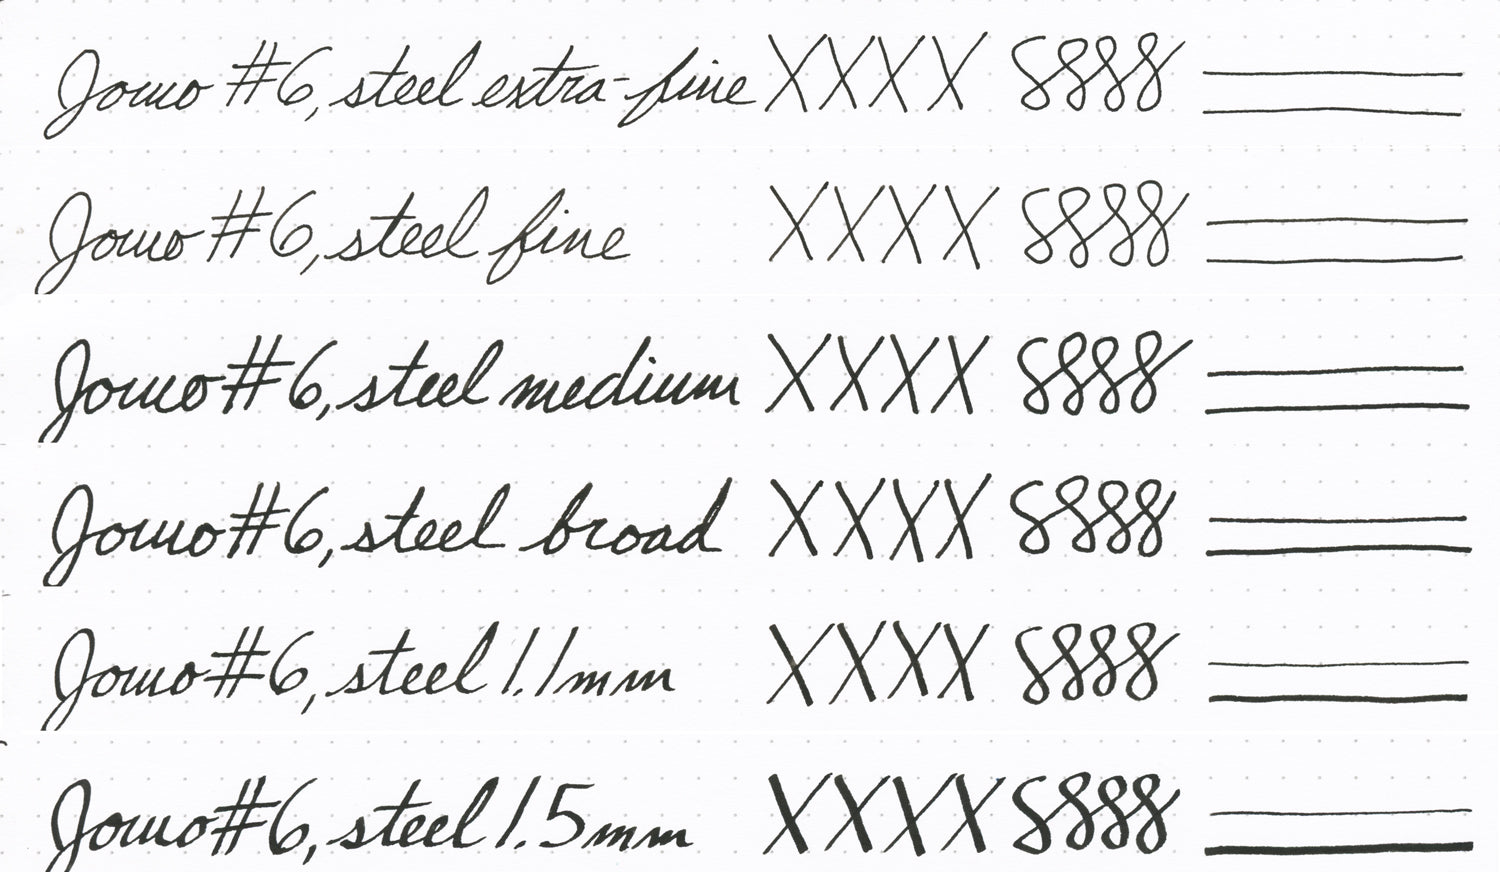 Jowo #6, steel extra-fine XXXX 8888
Jowo #6, steel fine XXXX 8888
Jowo #6, steel medium XXXX 8888
Jowo #6, steel broad XXXX 8888
Jowo #6, steel 1.1mm XXXX 8888
Jowo #6, steel 1.5mm XXXX 8888